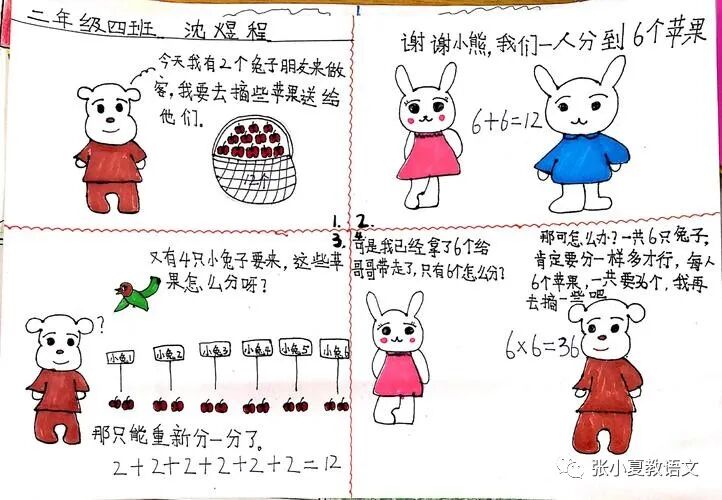 二年级四班 沈煜程
今天我有2个兔子朋友来做
客,我要去摘些苹果送给
他们。
12个
1.
谢谢小熊,我们一人分到6个苹果
6+6=12
2.
3.
又有4只小兔子要来,这些苹
果怎么分呀?
?
小兔1 小兔2 小兔3 小兔4 小兔5 小兔6
那只能重新分一分了。
2+2+2+2+2+2=12
4
可是我已经拿了6个给
哥哥带走了,只有6个怎么分?
那可怎么办?一共6只兔子,
肯定要分一样多才行,每人
6个苹果,一共要36个,我再
去摘一些吧
6×6=36
张小夏教语文